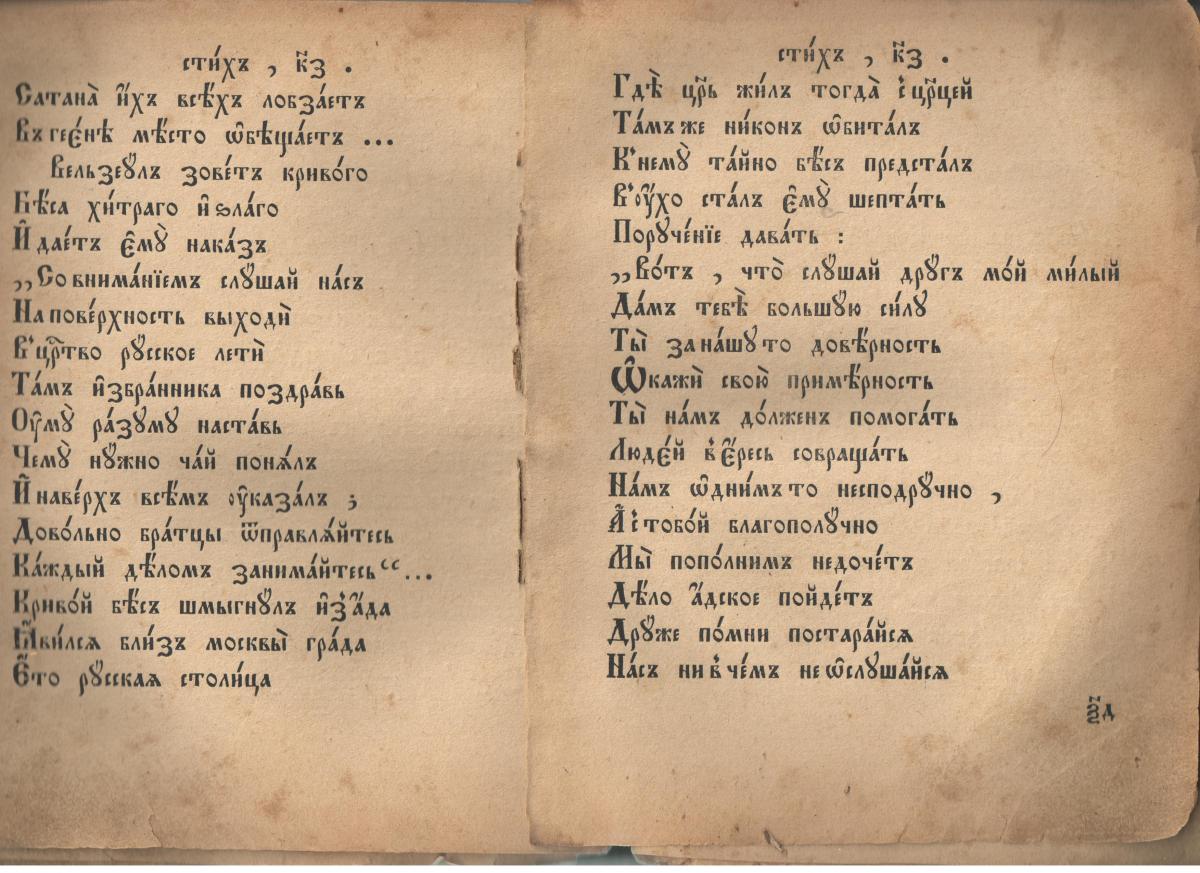 сти́хъ , к҃з .
Сатана̀ и҆́хъ всѣ́хъ лобза́етъ
Въ гее́нѣ мѣ́сто ѡ҆бѣща́етъ ...
Вельзеꙋ́лъ зове́тъ криво́го
Бѣ́са хи́траго и҆ ѕла́го
И҆ дае́тъ є҆мꙋ̀ нака́зъ
„Со внима́нїемъ слꙋ́шай на́съ
На пове́рхность выходѝ
В' цр҃тво рꙋ́сское летѝ
Та́мъ и҆збра́нника поздра́вь
Оу҆мꙋ̀ ра́зꙋмꙋ наста́вь
Чемꙋ̀ нꙋ́жно ча́й поня́лъ
И҆ наве́рхъ всѣ́мъ оу҆каза́лъ ;
Дово́льно бра́тцы ѿправлѧ́йтесь
Ка́ждый дѣ́ломъ занима́йтесь“...
Криво́й бѣ́съ шмыгнꙋ́лъ и҆з̾ а҆́да
Ꙗ҆ви́лсѧ бли́зъ москвы̀ гра́да
Є҆́то рꙋ́сскаѧ столи́ца
сти́хъ , к҃з .
Гдѣ̀ цр҃ь жи́лъ тогда̀ с̾ цр҃цей
Та́мъ же ни́конъ ѡ҆бита́лъ
К' немꙋ̀ та́йно бѣ́съ предста́лъ
В' оу҆́хо ста́лъ є҆мꙋ̀ шепта́ть
Порꙋче́нїе дава́ть :
„Во́тъ , что̀ слꙋ́шай дрꙋ́гъ мо́й ми́лый
Да́мъ тебѣ̀ большꙋ́ю си́лꙋ
Ты̀ за на́шꙋ то довѣ́рность
Ѡ҆кажѝ свою̀ примѣ́рность
Ты̀ на́мъ до́лженъ помога́ть
Людє́й в̾ є҆́ресь совраща́ть
На́мъ ѡ҆дни́мъ то несподрꙋ́чно ,
А҆ с̾ тобо́й благополꙋ́чно
Мы̀ попо́лнимъ недоче́тъ
Дѣ́ло а҆́дское пойде́тъ
Дрꙋ́же по́мни постара́йсѧ
На́съ ни в̾ че́мъ не ѡ҆слꙋша́йсѧ